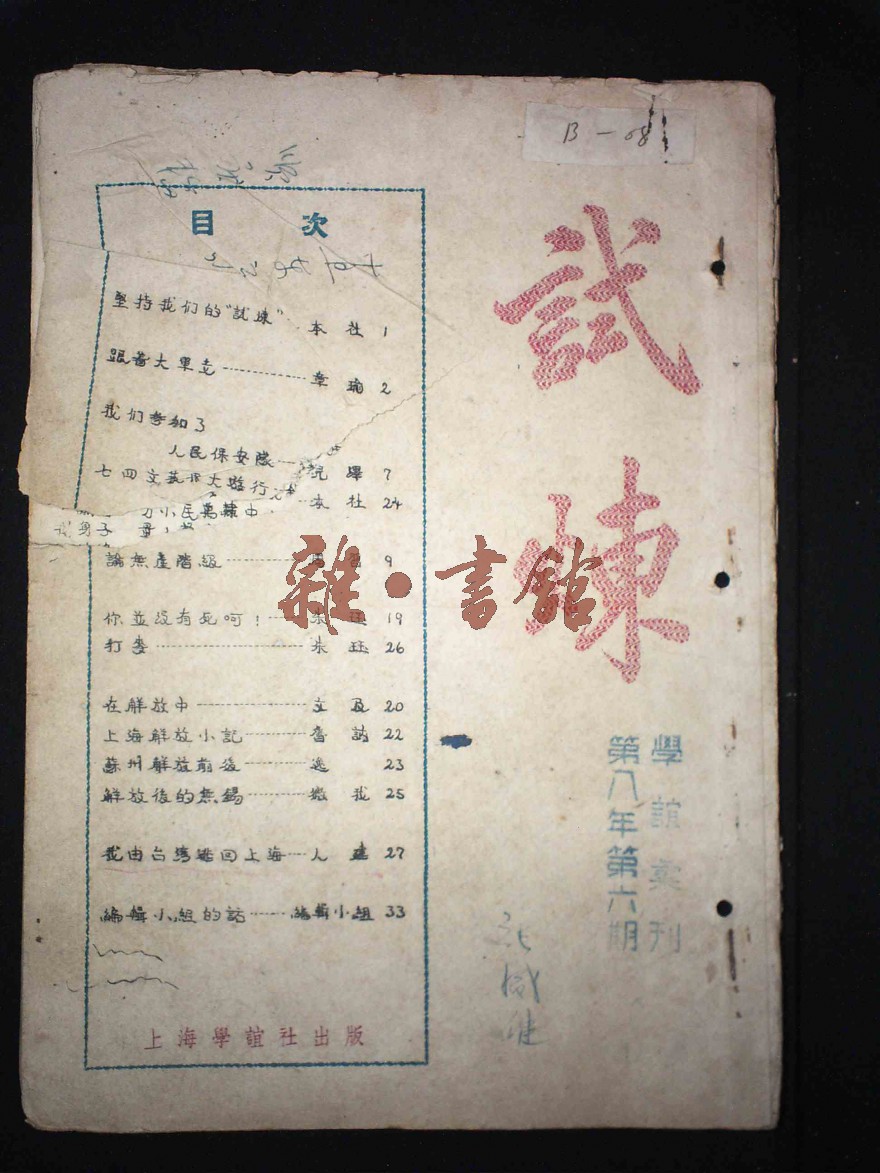 B-68
試煉
學誼彙刊
第八年第六期
目 次
堅持我们的"試煉" 本社 1
跟着大軍走 章瑜 2
我们参加了
人民保安隊 7
七四文藝大遊行 本社 24
小民萬
論無產階級 9
你並沒有死呵! 朱珏 19
打麥 朱珏 26
在解放中 20
上海解放小記 22
蘇州解放前後 逸 23
解放後的無錫 微我 25
我由台灣逃回上海 人建 27
編輯小組的話 編輯小組 33
上海學誼社出版
雜·書館